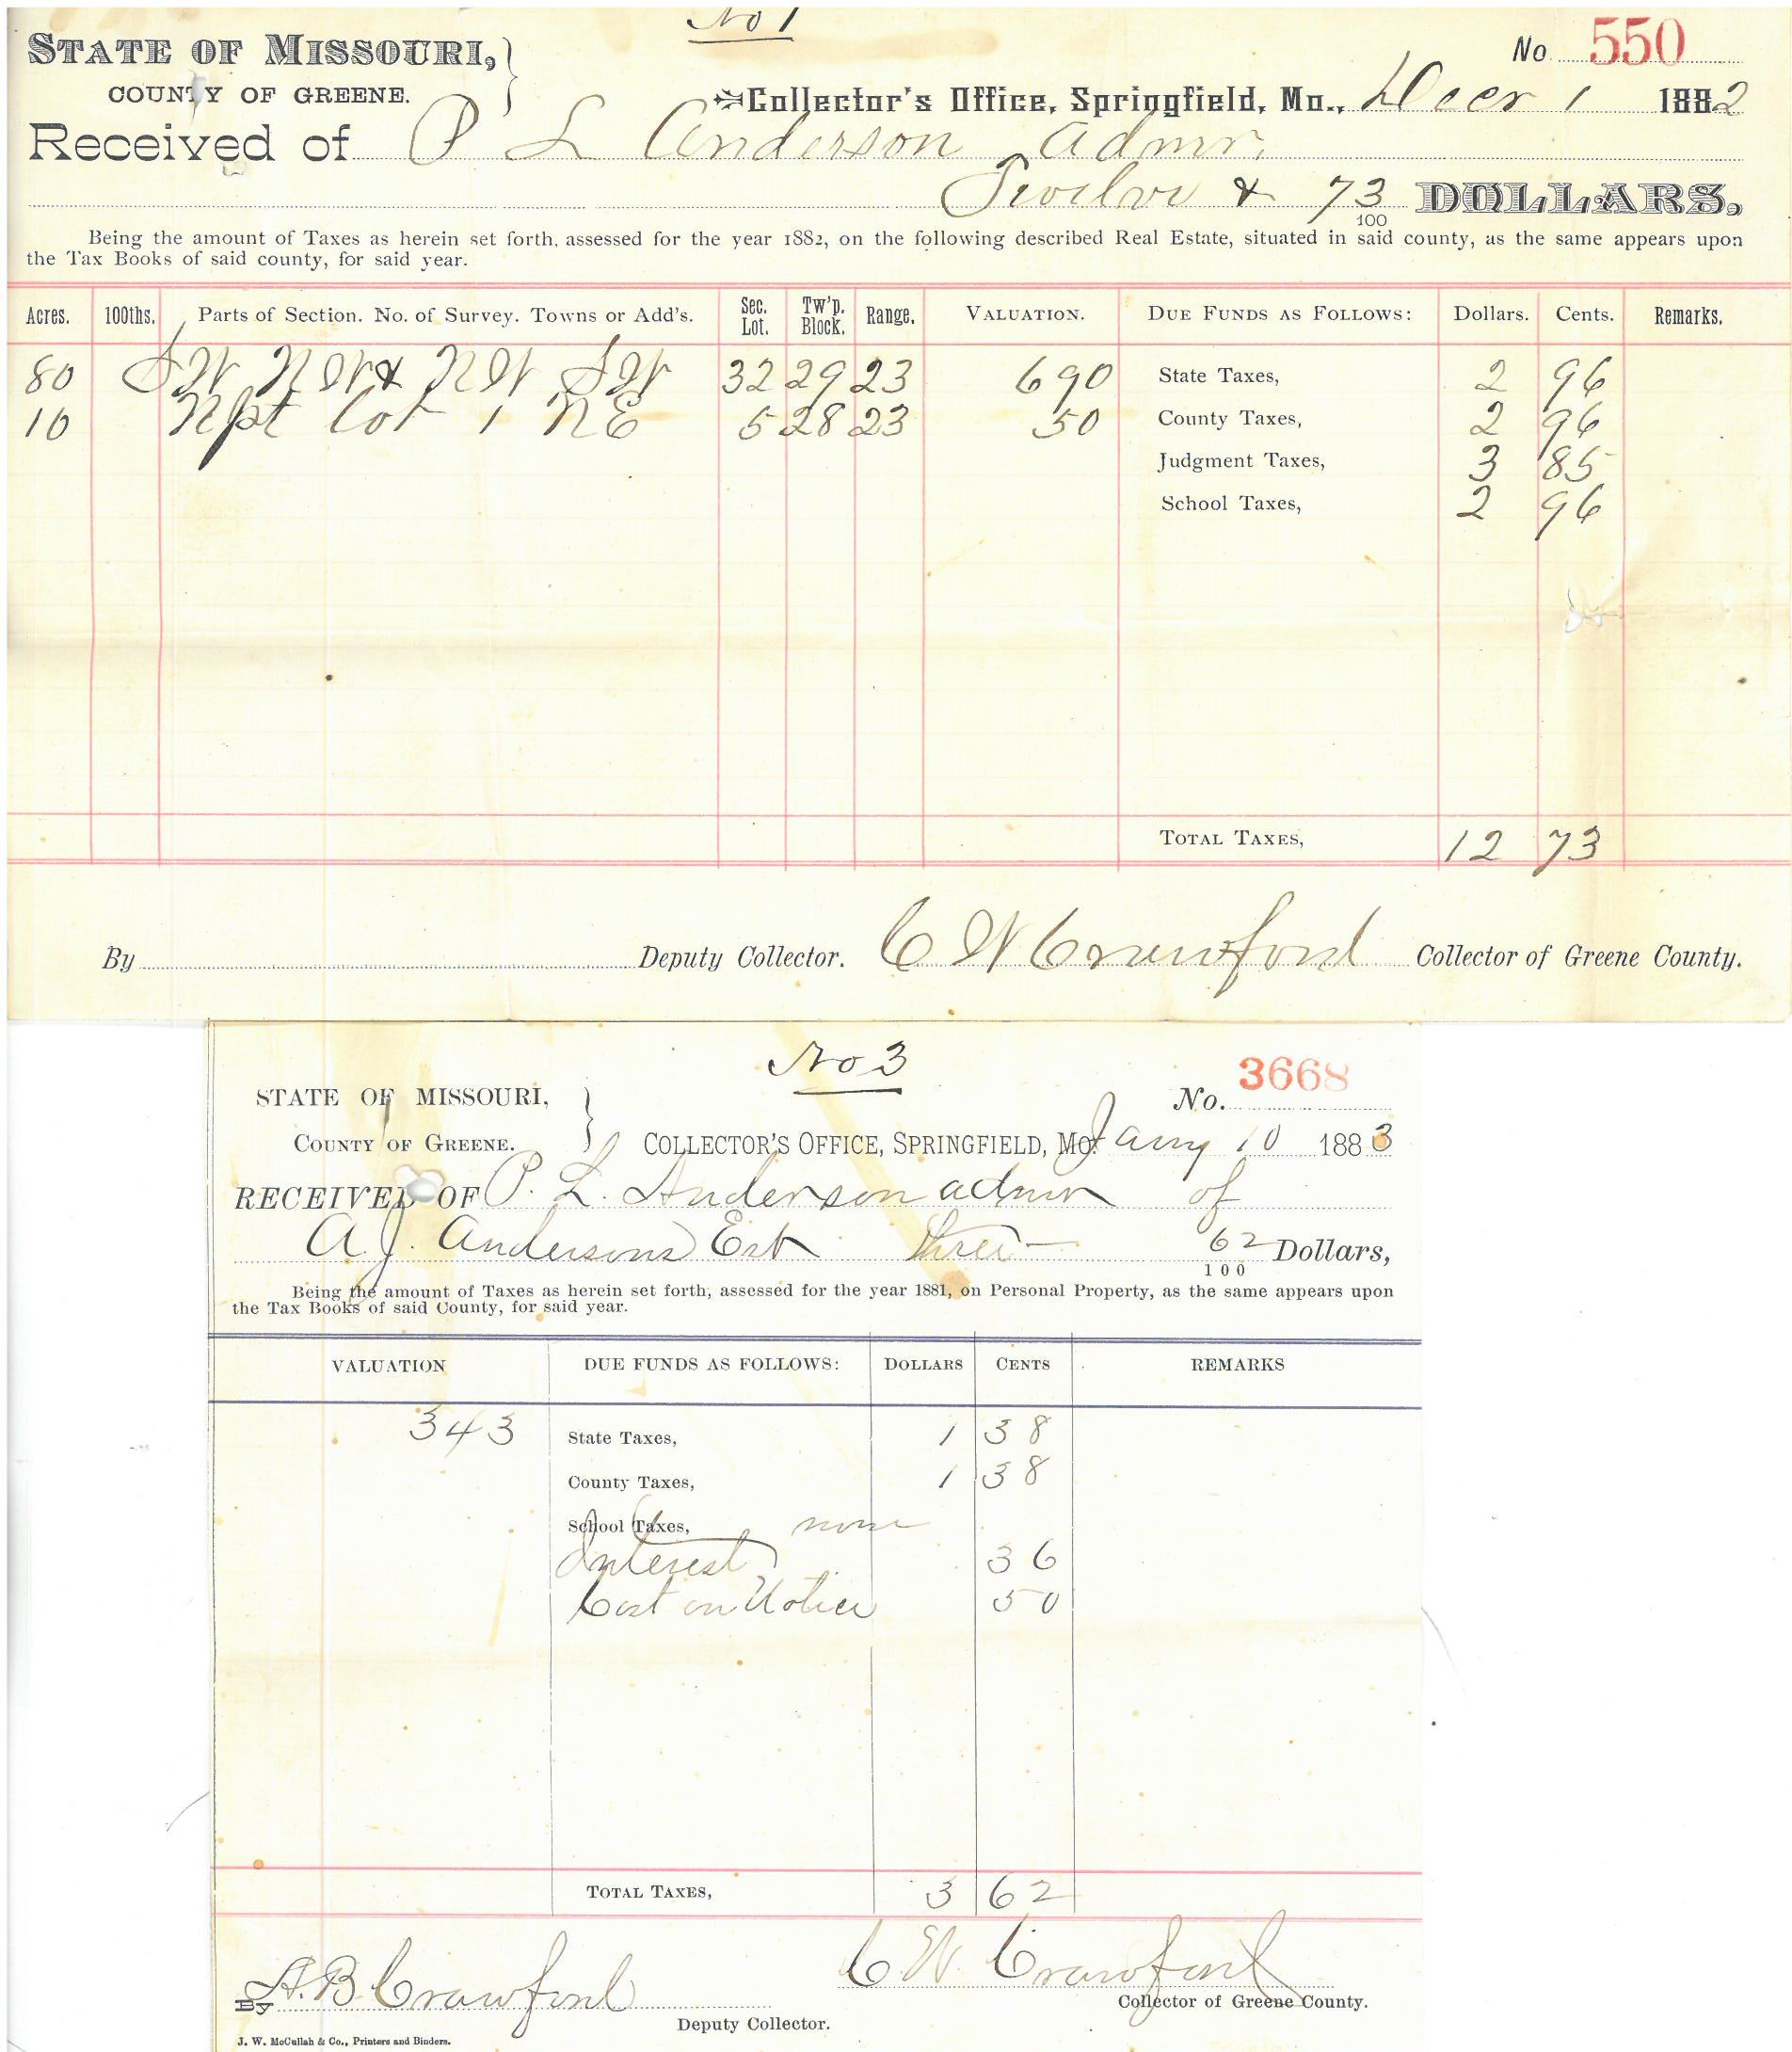 No 1
STATE OF MISSOURI, No. 550
COUNTY OF GREENE. Collector's Office, Springfield, Mo., Decr 1 1882
Received of P L Anderson admr.
Twelve & 73/100 DOLLARS.
Being the amount of Taxes as herein set forth, assessed for the year 1882, on the following described Real Estate, situated in said county, as the same appears upon
the Tax Books of said county, for said year.
Acres. 100ths. Parts of Section. No. of Survey. Towns or Add's. Sec. Lot. Tw'p. Block. Range. VALUATION. DUE FUNDS AS FOLLOWS: Dollars. Cents. Remarks.
80 SW NW & NW SW 32 29 23 690 State Taxes, 2 96
10 Npt Lot 1 NE 5 28 23 50 County Taxes, 2 96
Judgment Taxes, 3 85
School Taxes, 2 96
TOTAL TAXES, 12 73
By Deputy Collector. C W Crawford Collector of Greene County.
No 3
STATE OF MISSOURI, No. 3668
COUNTY OF GREENE. COLLECTOR'S OFFICE, SPRINGFIELD, MO. Jany 10 1883
RECEIVED OF P. L. Anderson admr of
A. J. Andersons Est three 62/100 Dollars,
Being the amount of Taxes as herein set forth, assessed for the year 1881, on Personal Property, as the same appears upon
the Tax Books of said County, for said year.
VALUATION DUE FUNDS AS FOLLOWS: DOLLARS CENTS REMARKS
343 State Taxes, 1 38
County Taxes, 1 38
School Taxes, none
Interest 36
Cost on Notice 50
TOTAL TAXES, 3 62
By A. B. Crawford C W. Crawford
Collector of Greene County.
Deputy Collector.
J. W. McCullah & Co., Printers and Binders.